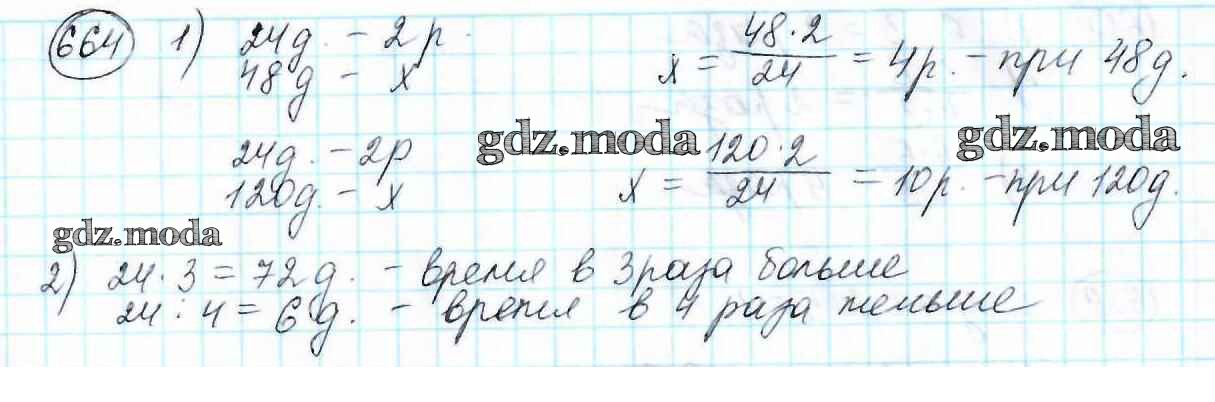 664 1) 24д. - 2р.
48д - х
х = 48·2/24 = 4р. - при 48д.
24д. - 2р
120д. - х
х = 120·2/24 = 10р. - при 120д.
gdz.moda
gdz.moda
gdz.moda
2) 24·3 = 72д. - время в 3 раза больше
24 : 4 = 6д. - время в 4 раза меньше